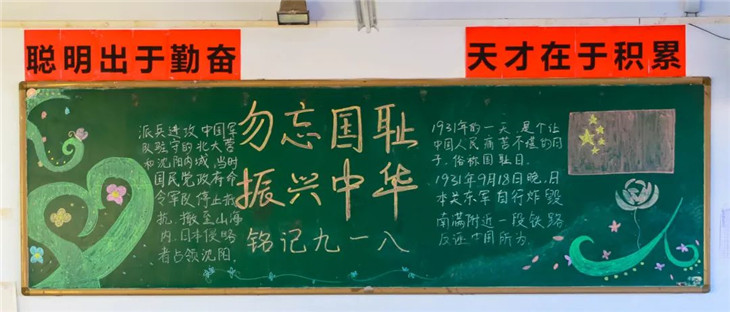 聪明出于勤奋
天才在于积累
勿忘国耻
振兴中华
铭记九一八
1931年的一天,是个让
中国人民痛苦不堪的日
子,俗称国耻日。
1931年9月18日晚,日
本关东军自行炸毁
南满附近一段铁路
反诬中国所为。
派兵进攻中国军
队驻守的北大营
和沈阳内城,当时
国民党政府命
令军队停止抵
抗,撤至山海
内,日本侵略
者占领沈阳。